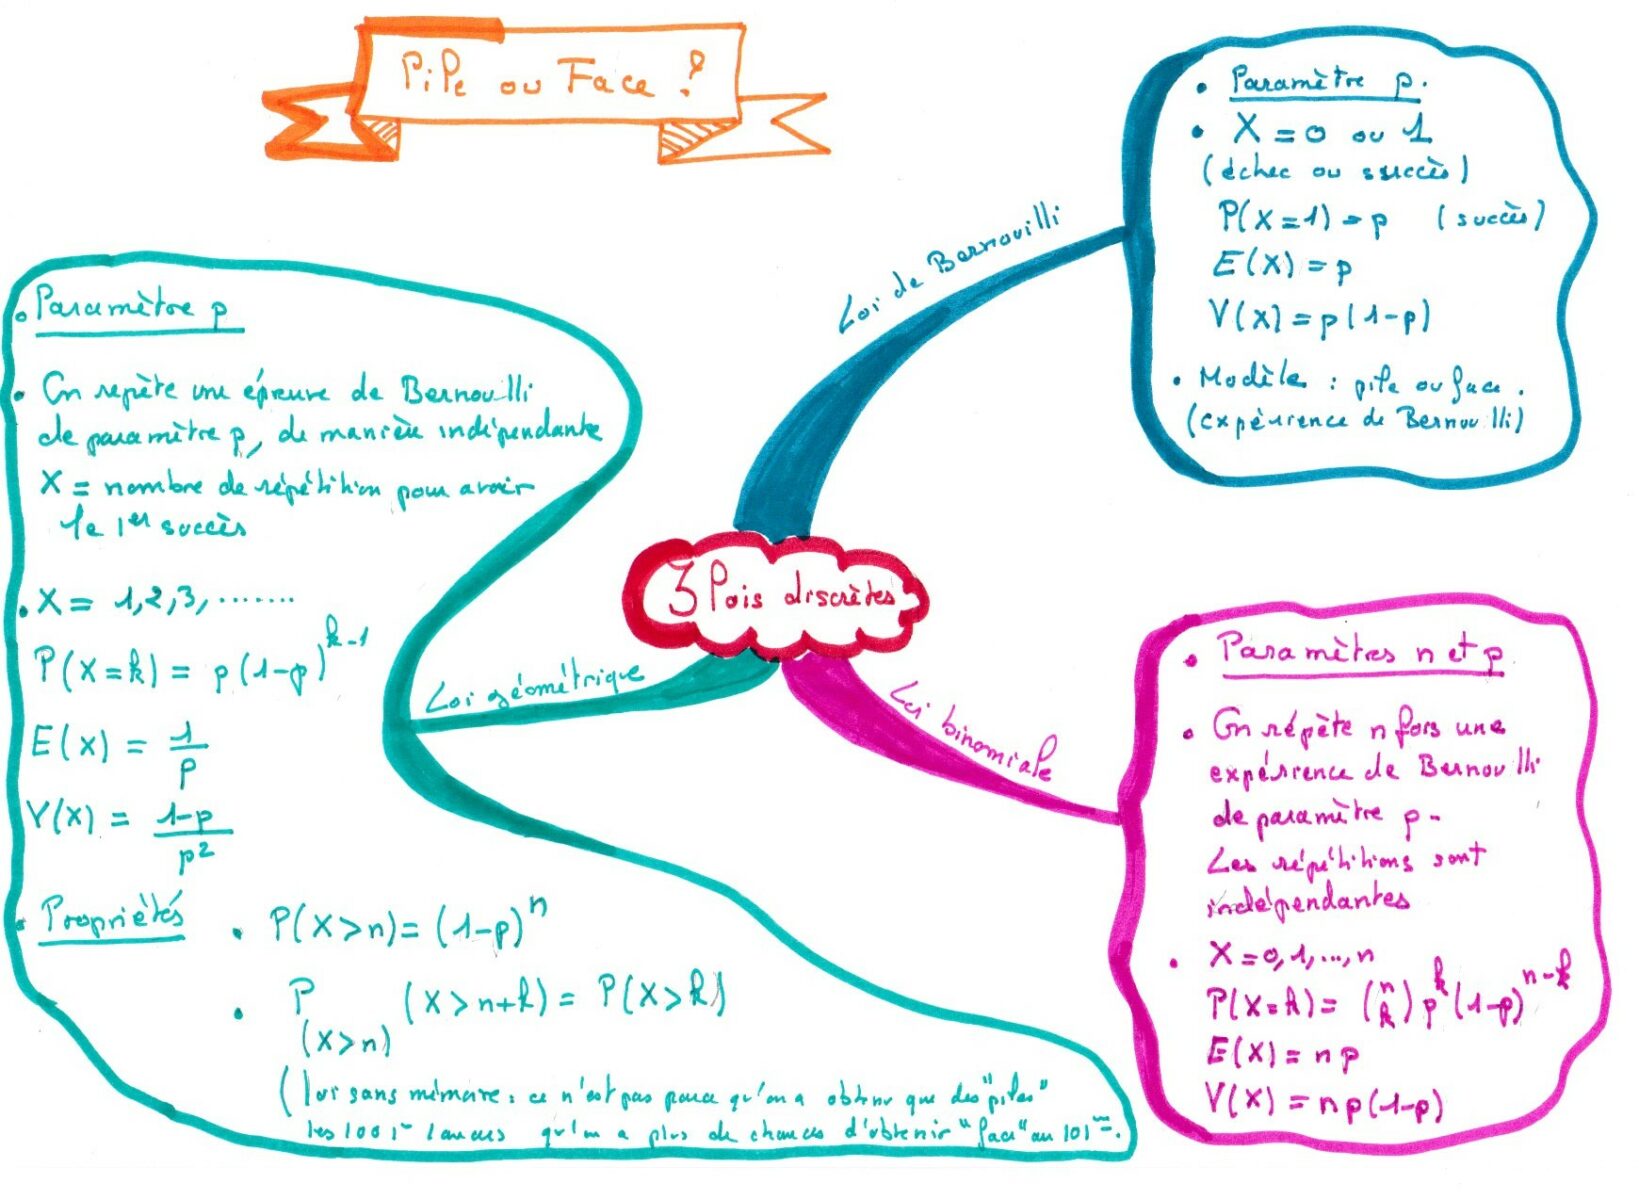 Pile ou Face ?
3 lois discrètes
Loi de Bernouilli
• Paramètre p.
• X = 0 ou 1
(échec ou succès)
P(X=1) = p (succès)
E(X) = p
V(X) = p(1-p)
• Modèle : pile ou face.
(expérience de Bernouilli)
Loi binomiale
• Paramètres n et p
• On répète n fois une
expérience de Bernoulli
de paramètre p.
Les répétitions sont
indépendantes
• X = 0, 1, ..., n
P(X=k) = (n k) p^k (1-p)^n-k
E(X) = np
V(X) = np(1-p)
Loi géométrique
• Paramètre p
• On repète une épreuve de Bernouilli
de paramètre p, de manière indépendante
X = nombre de répétition pour avoir
le 1er succès
• X = 1,2,3, .......
P(X=k) = p(1-p)^k-1
E(X) = 1/p
V(X) = 1-p/p²
• Propriétés • P(X>n) = (1-p)^n
• P (X>n+k) = P(X>k)
(X>n)
(loi sans mémoire : ce n'est pas parce qu'on a obtenu que des "piles"
les 100 1ers lancers qu'on a plus de chances d'obtenir "face" au 101ème.